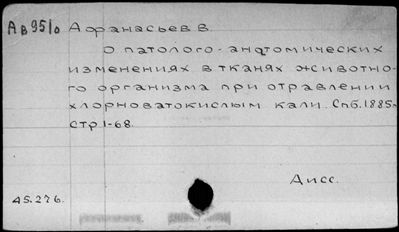 Ав95/о Афанасьев В.
О патолого-анатомических
изменениях в тканях животно-
го организма при отравлении
хлорноватокислым кали. Спб. 1885.
Стр. 1-68.
Дисс.
45.276.